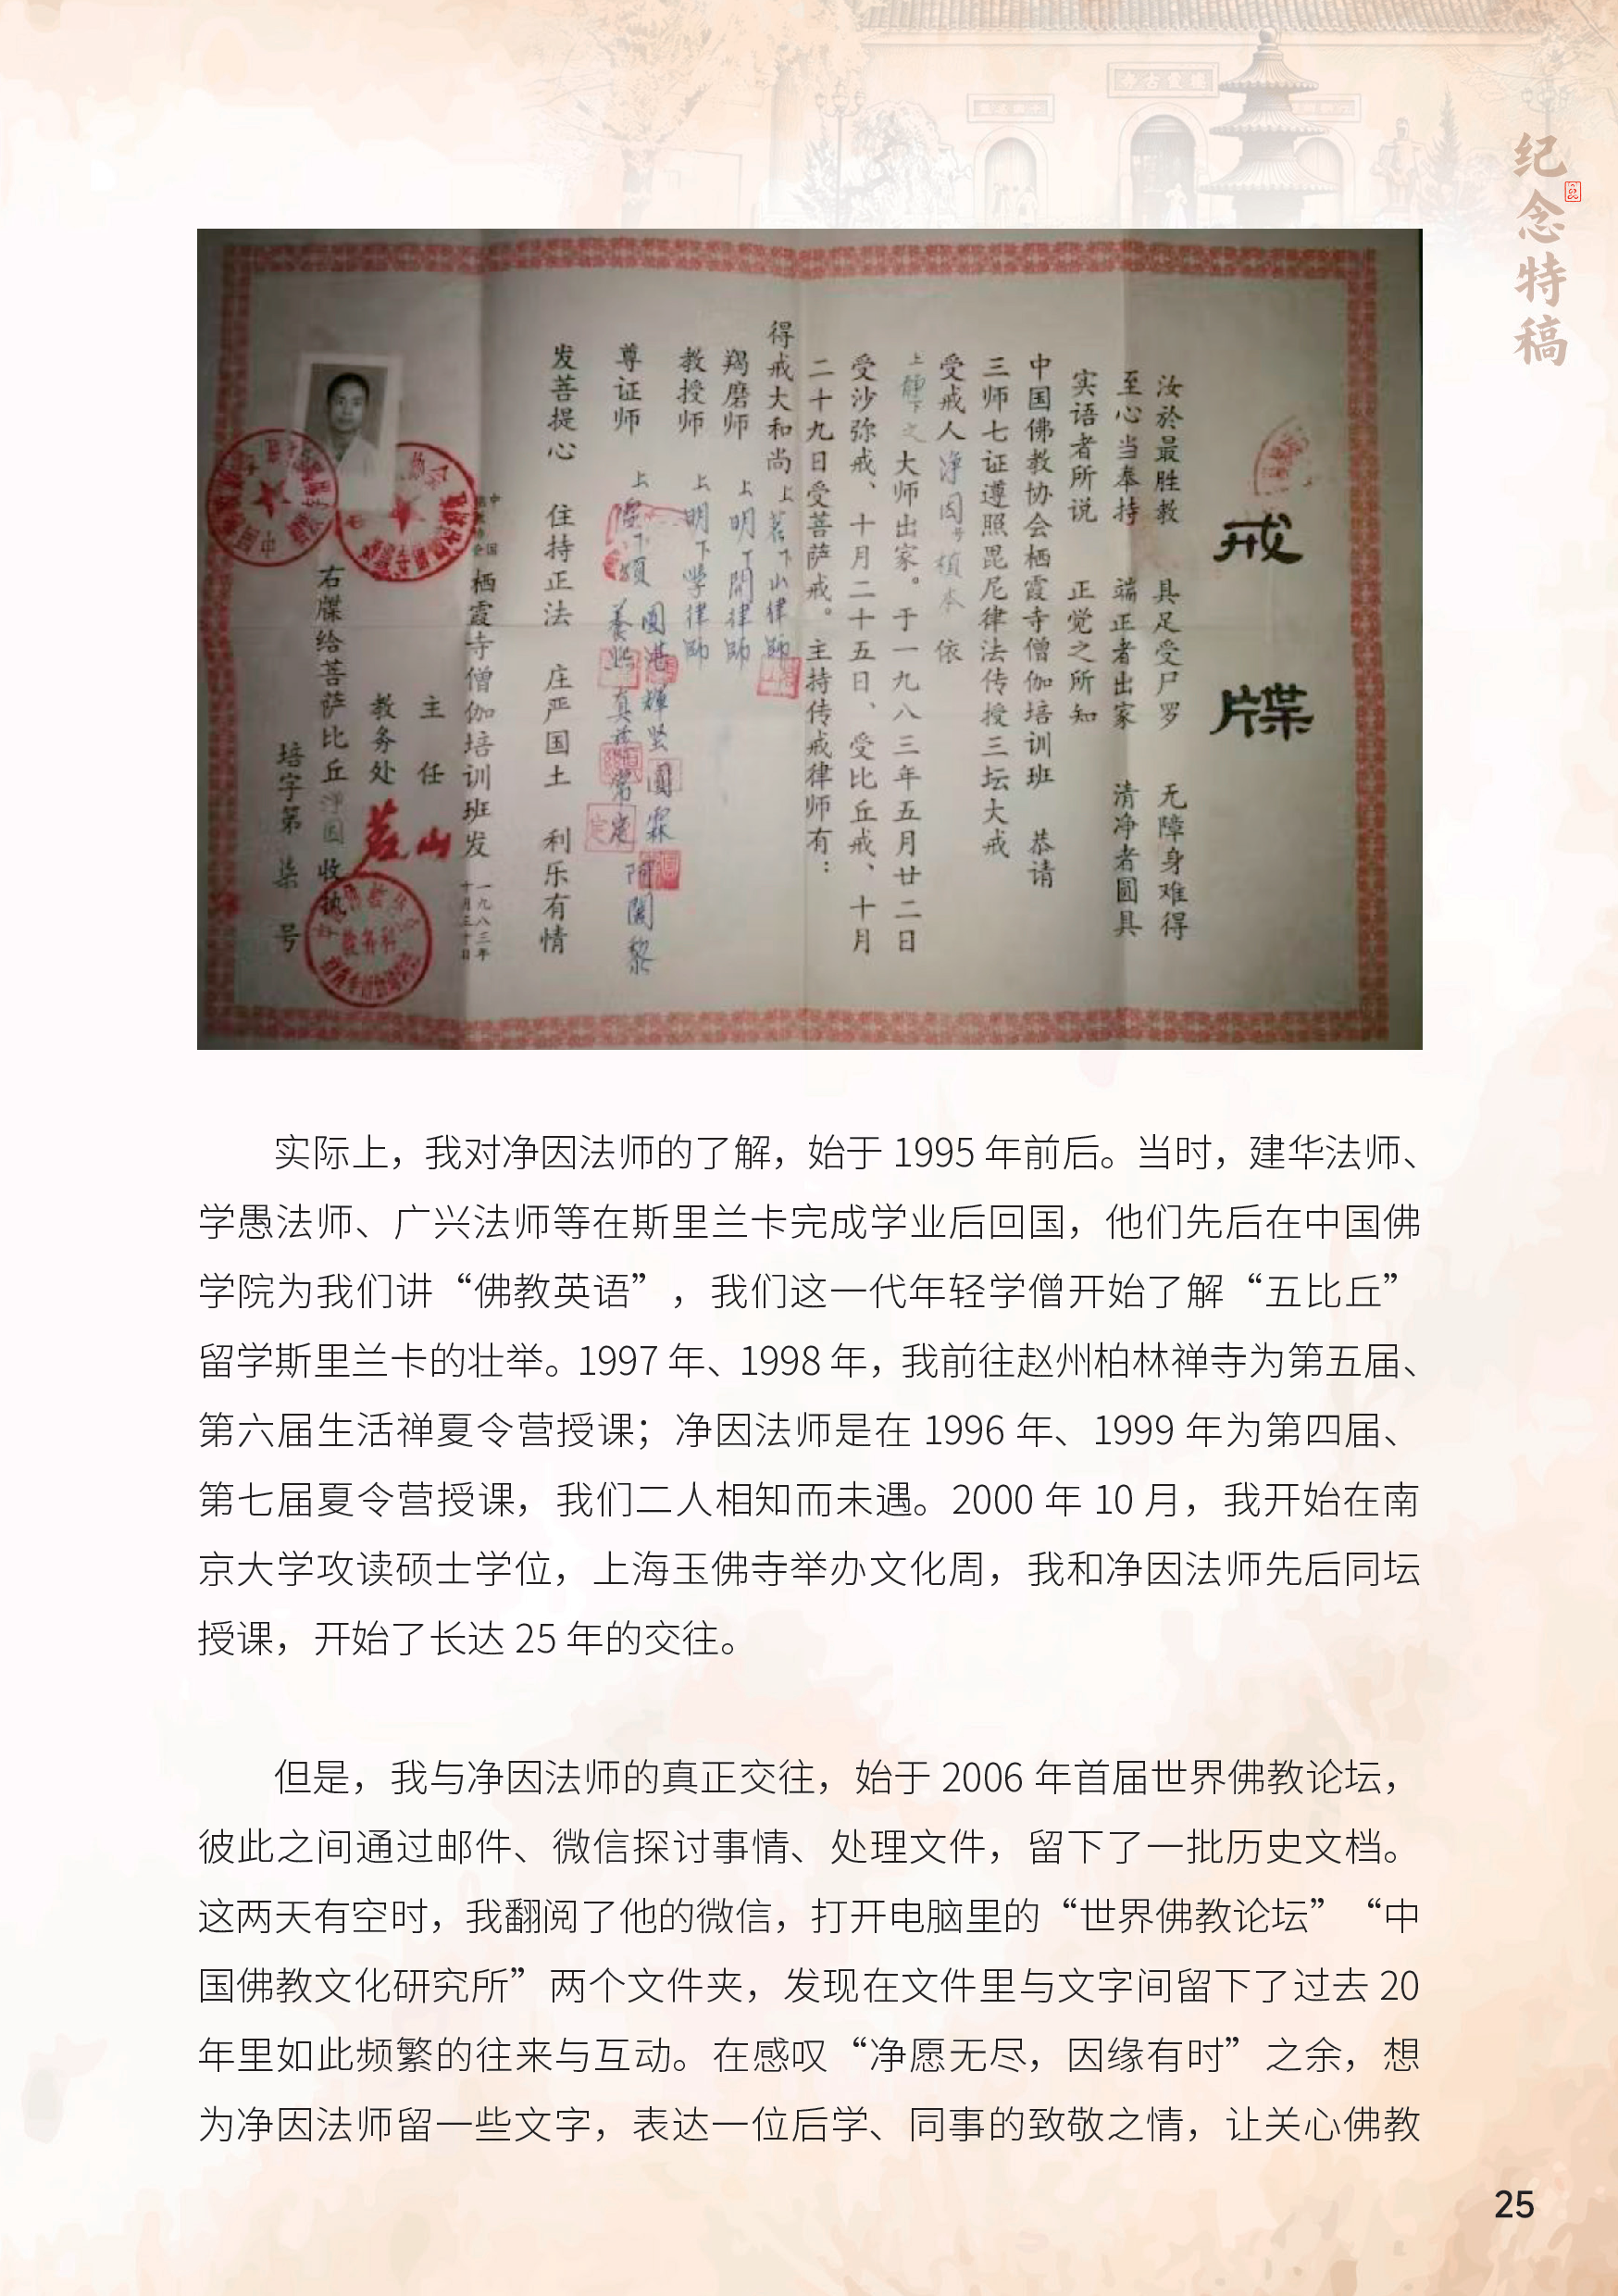 纪念特稿
戒牒
汝於最胜教 具足受尸罗 无障身难得
至心当奉持 端正者出家 清净者圆具
实语者所说 正觉之所知
中国佛教协会栖霞寺僧伽培训班 恭请
三师七证遵照毘尼律法传授三坛大戒
受戒人净因号植本 依
上静下之大师出家。于一九八三年五月廿二日
受沙弥戒、十月二十五日、受比丘戒、十月
二十九日受菩萨戒。主持传戒律师有：
得戒大和尚 上茗下山律師
羯磨师 上明下開律師
教授师 上明下學律師
尊证师 上
圓湛 輝坚 圓霖 阿闍黎
发菩提心 住持正法 庄严国土 利乐有情
栖霞寺僧伽培训班发
一九八三年
十月三十日
主任 茗山
教务处
右牒给菩萨比丘净因收执
培字第柒号
实际上，我对净因法师的了解，始于 1995 年前后。当时，建华法师、
学愚法师、广兴法师等在斯里兰卡完成学业后回国，他们先后在中国佛
学院为我们讲“佛教英语”，我们这一代年轻学僧开始了解“五比丘”
留学斯里兰卡的壮举。1997 年、1998 年，我前往赵州柏林禅寺为第五届、
第六届生活禅夏令营授课；净因法师是在 1996 年、1999 年为第四届、
第七届夏令营授课，我们二人相知而未遇。2000 年 10 月，我开始在南
京大学攻读硕士学位，上海玉佛寺举办文化周，我和净因法师先后同坛
授课，开始了长达 25 年的交往。
但是，我与净因法师的真正交往，始于 2006 年首届世界佛教论坛，
彼此之间通过邮件、微信探讨事情、处理文件，留下了一批历史文档。
这两天有空时，我翻阅了他的微信，打开电脑里的“世界佛教论坛”“中
国佛教文化研究所”两个文件夹，发现在文件里与文字间留下了过去 20
年里如此频繁的往来与互动。在感叹“净愿无尽，因缘有时”之余，想
为净因法师留一些文字，表达一位后学、同事的致敬之情，让关心佛教
25